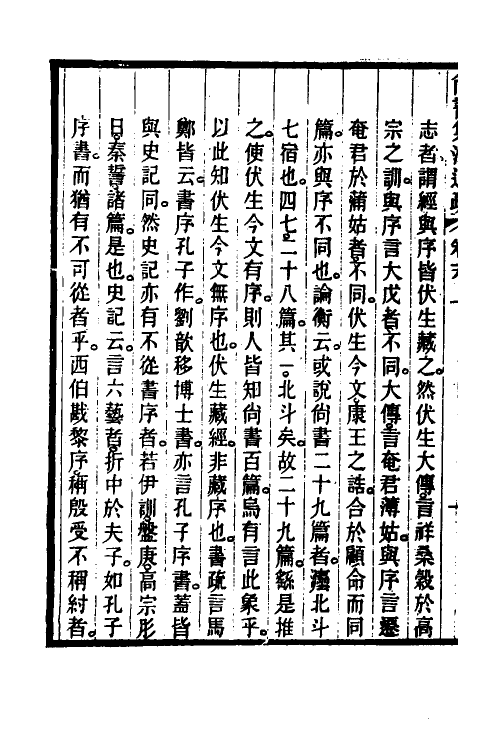 志者謂經與序皆伏生藏之。然伏生大傳言祥桑穀於高
宗之訓。與序言大戊者不同。大傳言奄君薄姑。與序言遷
奄君於蒲姑者不同。伏生今文康王之誥。合於顧命而同
篇。亦與序不同也。論衡云。或說尚書二十九篇者。灋北斗
七宿也。四七二十八篇。其一北斗矣。故二十九篇。繇是推
之。使伏生今文有序。則人皆知尚書百篇。烏有言此象乎。
以此知伏生今文無序也。伏生藏經。非藏序也。書疏言馬
鄭皆云。書序孔子作。劉歆移博士書。亦言孔子序書。蓋皆
與史記同。然史記亦有不從書序者。若伊訓盤庚高宗肜
日秦誓諸篇是也。史記云。言六藝者。折中於夫子。如孔子
序書。而猶有不可從者乎。西伯戡黎序稱殷受不稱紂者。